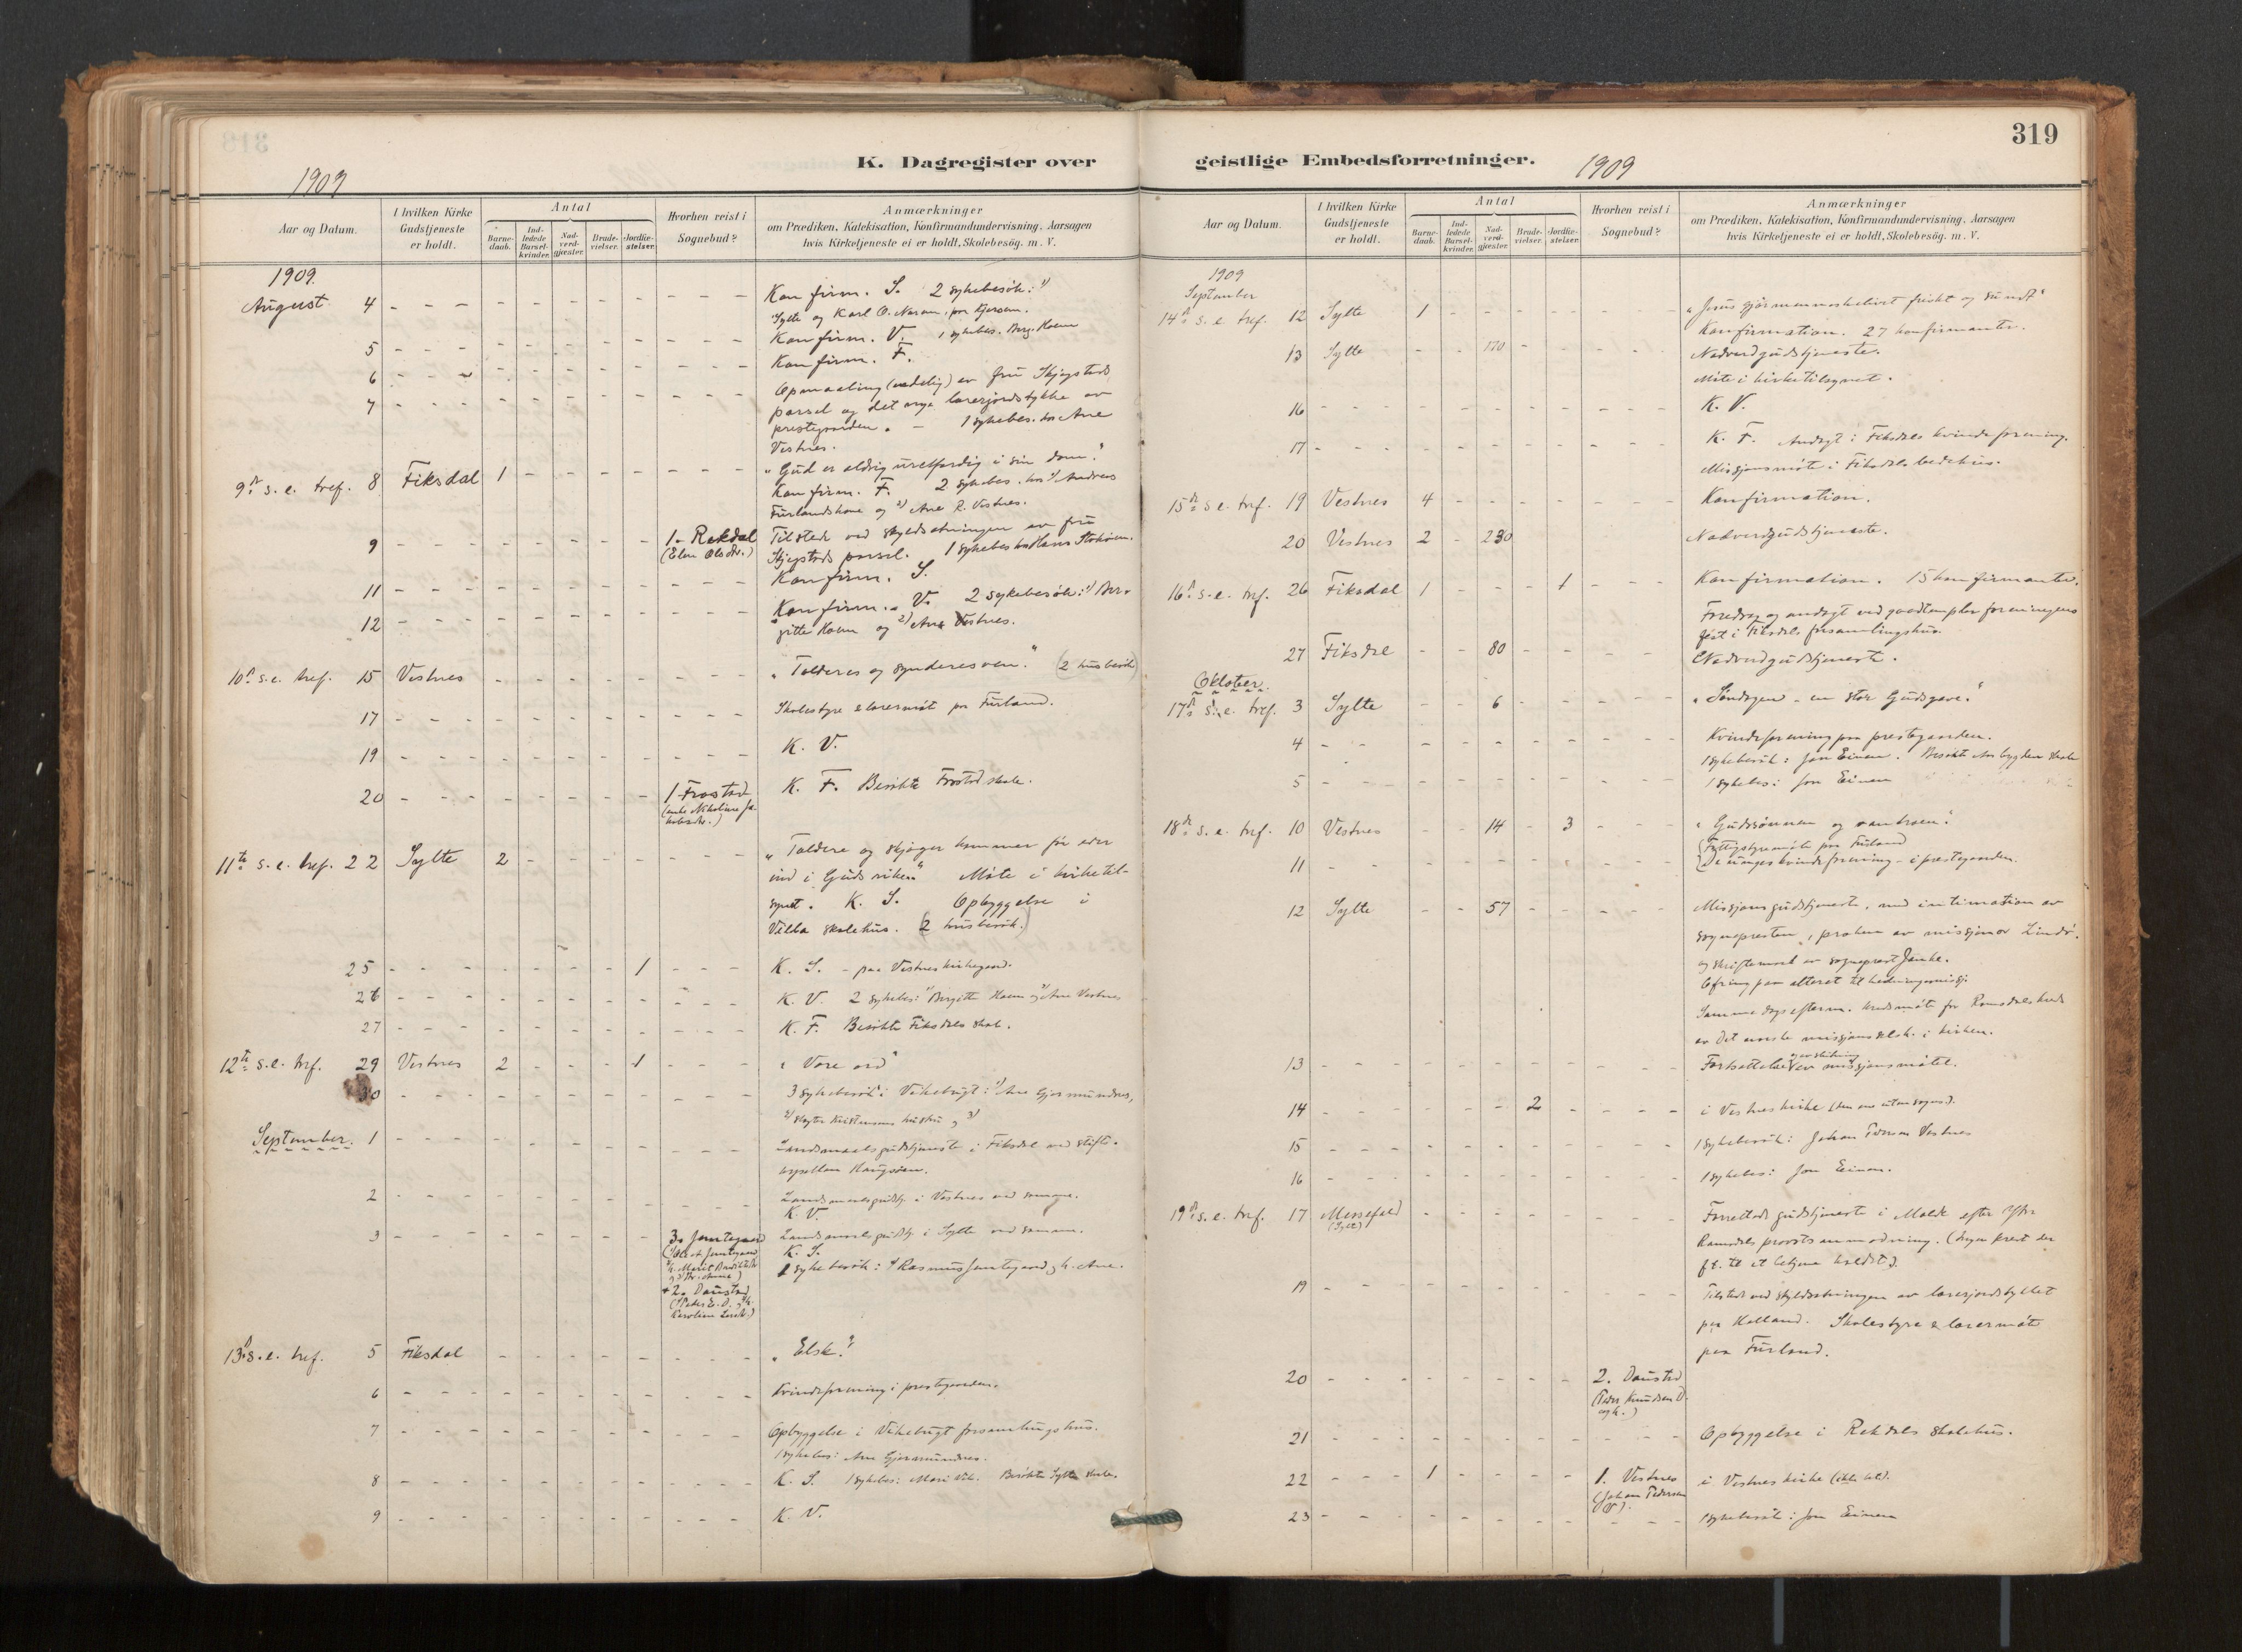 319
K. Dagregister over
1909
Aar og Datum.
I hvilken Kirke Gudstjeneste er holdt.
Antal
Barne-daab.
Ind-ledede Barsel-kvinder.
Nad-verd-gjæster.
Brude-vielser.
Jordfæ-stelser.
Hvorhen reist i Sognebud?
Anmærkninger
om Prædiken, Katekisation, Konfirmandundervisning. Aarsagen
hvis Kirketjeneste ei er holdt, Skolebesøg. m. V.
1909.
August 4 - - - - - - - - - Konfirm. S. 2 sykebesök: 1)
Sylte og Karl O.
5 - - - - - - - - - Konfirm. V. 1 sykebes. Berg. Hoem
6 - - - - - - - - - Konfirm. F.
7 - - - - - - - - - Opmaaling av fru Skjegstads
parsel og det nye lærerjordstykke av
prestegaarden. - 1 sykebes. hos Ane
Vestnes.
9de s. e. tref. 8 Fiksdal 1 - - - - - - "Gud er aldrig uretfærdig i sin dom."
Konfirm. F. 2 sykebes. hos 1) Andreas
og 2) Ane R. Vestnes.
9 - - - - - - 1. Rekdal Tilstede ved skyldsætningen av fru
(Elen Olsdtr.) Skjegstads parsel. 1 sykebes hos Hans
11 - - - - - - - - - Konfirm. S.
12 - - - - - - - - - Konfirm. V. 2 sykebesök: 1) Bir-
gitte Hoem og 2) Ane Vestnes.
10de s. e. tref. 15 Vestnes - - - - - - "Tolderes og synderes ven." (2 husbesök)
17 - - - - - - - - - Skolestyre & lærermöt paa Furland.
19 - - - - - - - - - K. V.
20 - - - - - - 1 Frostad K. F. Besökte Frostad skole.
(enke Nikoline Ja-
kobsdtr.)
11te s. e. tref. 22 Sylte 2 - - - - - - "Toldere og skjöger kommer för eder
ind i Guds rike." Möte i kirketil-
synet. K. S. Opbyggelse i
Villa skolehus. (2 husbesök.)
25 - - - - - - - 1 - - - K. S. - paa Vestnes kirkegaard.
26 - - - - - - - - - K. V. 2 sykebes: 1) Birgitte Hoem og 2) Ane Vestnes
27 - - - - - - - - - K. F. Besökte Fiksdals skole.
12te s. e. tref. 29 Vestnes 2 - - - 1 - - - "Vore ord"
30 - - - - - - - - - 3 sykebesök i Vikebugt: 1) Ane Gjermundnes,
2) Kristensens hustru, 3)
September. 1 - - - - - - - - - Landsmaalsgudstjeneste i Fiksdal ved stifts-
kapellan
2 - - - - - - - - - Landsmaalsgudstj. i Vestnes ved samme.
K. V.
3 - - - - - - - 3. Jamtegaard Landsmaalsgudstj. i Sylte ved samme.
K. S.
2 sykebesök: 1) Rasmus Jamtegaard, h. Ane.
+ 2. Daustad
13de s. e. tref. 5 Fiksdal - - - - - - "Elsk!"
6 - - - - - - - - - Kvindeforening i prestegaarden.
7 - - - - - - - - - Opbyggelse i Vikebugt forsamlingshus.
1 sykebes: Ane Gjermundnes.
8 - - - - - - - - - K. S. 1 sykebes: Mari Vik. Besökte Sylte skole.
9 - - - - - - - - - K. V.
geistlige Embedsforretninger.
1909
319
Aar og Datum.
I hvilken Kirke Gudstjeneste er holdt.
Antal
Barne-daab.
Ind-ledede Barsel-kvinder.
Nad-verd-gjæster.
Brude-vielser.
Jordfæ-stelser.
Hvorhen reist i Sognebud?
Anmærkninger
om Prædiken, Katekisation, Konfirmandundervisning. Aarsagen
hvis Kirketjeneste ei er holdt, Skolebesøg. m. V.
1909
September
14de s. e. tref. 12 Sylte 1 - - - - - - "Jesus gjör menneskelivet friskt og sundt"
Konfirmation. 27 konfirmanter.
13 Sylte - - 170 - - - - Nadverdgudstjeneste.
Möte i kirketilsynet.
16 - - - - - - - - - K. V.
17 - - - - - - - - - K. F. Andagt i Fiksdals kvindeforening.
Missjonsmöte i Fiksdals bedehus.
15de s. e. tref. 19 Vestnes 4 - - - - - - Konfirmation.
20 Vestnes 2 - 230 - - - - Nadverdgudstjeneste.
16de s. e. tref. 26 Fiksdal 1 - - - 1 - - - Konfirmation. 15 konfirmanter.
Foredrag og andagt ved goodtemplarforeningens
fest i Fiksdals forsamlingshus.
27 Fiksdal - - 80 - - - - Nadverdgudstjeneste.
Oktober.
17de s. e. tref. 3 Sylte - - 6 - - - - "Söndagen - en stor Gudsgave."
4 - - - - - - - - - Kvindeforening paa prestegaarden.
1 sykebesök: Jon Einen. Besökte skole
5 - - - - - - - - - 1 sykebes: Jon Einen
18de s. e. tref. 10 Vestnes - - 14 - 3 - - - "Gudssönnen og vantroen."
(Fattigstyremöte paa Furland
11 - - - - - - - - - (De unges kvindeforening - i prestegaarden.
12 Sylte - - 57 - - - - Missjonsgudstjeneste, med intimation av
sognepresten, præken av missjonær Lindö.
og skriftemaal av sogneprest
Ofring paa alteret til hedningemissj.
Samme dags efterm. kredsmöte for Romsdals kreds
av det norske missjonsselsk. i kirken.
13 - - - - - - - - - Fortsættelse og avslutning av missjonsmötet.
14 - - - - - 2 - - - i Vestnes kirke (den ene utensogns).
15 - - - - - - - - - 1 sykebesök: Johan Pedersen Vestnes
16 - - - - - - - - - 1 sykebes: Jon Einen.
19de s. e. tref. 17 Messefald - - - - - - Forrettede gudstjeneste i Molde efter Ytre
(Sylte) Romsdals provsts anmodning. (Ingen prest der
f. t. til at betjene kaldet).
19 - - - - - - - - - Tilstede ved skyldsætningen av lærerjordstykket
paa Helland. Skolestyre & lærermöte
paa Furland.
20 - - - - - - - 2. Daustad
(Peder Knudsen D.
og h.)
21 - - - - - - - - - Opbyggelse i Rekdals skolehus.
22 - - - 1 - - - - 1. Vestnes i Vestnes kirke
(Johan Pedersen
V).
23 - - - - - - - - - 1 sykebesök: Jon Einen